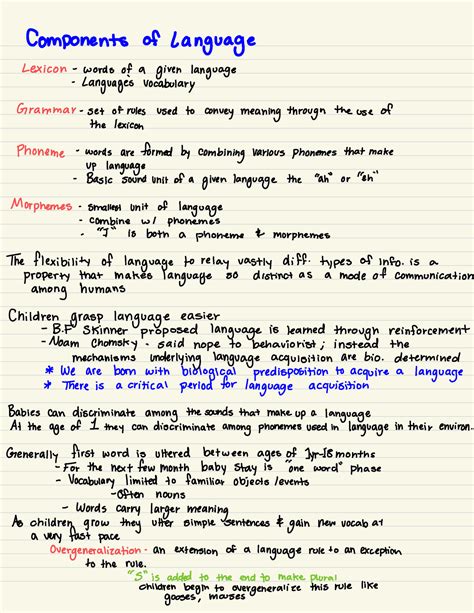 Components of Language
Lexicon - words of a given language
- Languages vocabulary
Grammar - set of rules used to convey meaning through the use of
the lexicon
Phoneme - words are formed by combining various phonemes that make
up language
- Basic sound unit of a given language the "ah" or "eh"
Morphemes - smallest unit of language
- combine w/ phonemes
- "I" is both a phoneme & morphemes
The flexibility of language to relay vastly diff. types of info. is a
property that makes language so distinct as a mode of communication
among humans
Children grasp language easier
- B.F Skinner proposed language is learned through reinforcement
- Noam Chomsky - said nope to behaviorist; instead the
mechanisms underlying language acquisition are bio. determined
* We are born with biological predisposition to acquire a language
* There is a critical period for language acquisition
Babies can discriminate among the sounds that make up a language
At the age of 1 they can discriminate among phonemes used in language in their environ.
Generally first word is uttered between ages of 1yr-18 months
- For the next few month baby stay is "one word" phase
- Vocabulary limited to familiar objects/events
- Often nouns
- Words carry larger meaning
As children grow they utter simple sentences & gain new vocab at
a very fast pace
Overgeneralization - an extension of a language rule to an exception
to the rule.
"S" is added to the end to make plural
children begin to overgeneralize this rule like
gooses, mouses